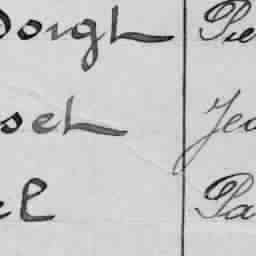 dorgh Pie
seh Jea
el Pa